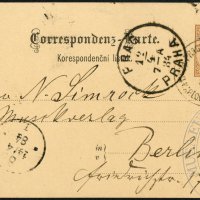 Correspondenz-Karte.
Korespondenční lístek
PRAG
PRAHA
N. Simrock
Musikverlag
Berlin
Friedrichstr. 17